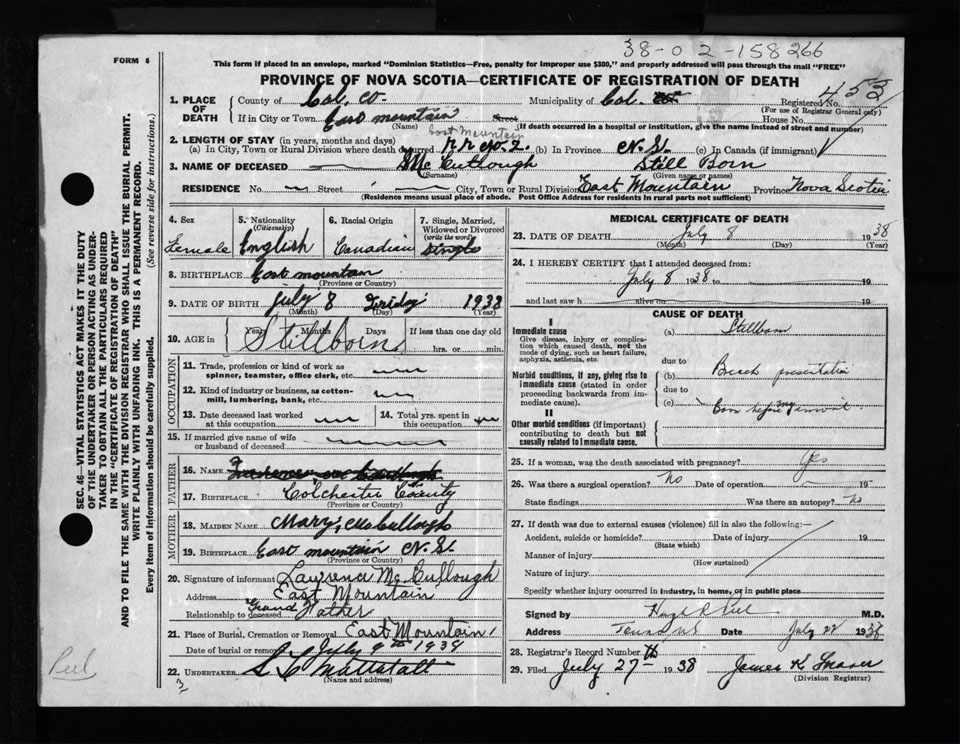 38-02-158266
FORM 6
This form if placed in an envelope, marked "Dominion Statistics—Free, penalty for improper use $300," and properly addressed will pass through the mail "FREE"
PROVINCE OF NOVA SCOTIA—CERTIFICATE OF REGISTRATION OF DEATH
453
1. PLACE OF DEATH
County of Col. co. Municipality of Col. Registered No.
(For use of Registrar General only)
If in City or Town East mountain Street House No.
(Name) (If death occurred in a hospital or institution, give the name instead of street and number)
East Mountain
2. LENGTH OF STAY (in years, months and days)
(a) In City, Town or Rural Division where death occurred R R No 2. (b) In Province N. S. (c) In Canada (if immigrant)
3. NAME OF DECEASED McCullough Still Born
(Surname) (Given name or names)
RESIDENCE No. Street City, Town or Rural Division East Mountain Province Nova Scotia
(Residence means usual place of abode. Post Office Address for residents in rural parts not sufficient)
4. Sex Female
5. Nationality (Citizenship) English
6. Racial Origin Canadian
7. Single, Married, Widowed or Divorced (write the word) Single
8. BIRTHPLACE East mountain
(Province or Country)
9. DATE OF BIRTH July 8 Friday 1938
(Month) (Day) (Year)
10. AGE in Years Months Days If less than one day old
Stillborn hrs. or min.
OCCUPATION
11. Trade, profession or kind of work as spinner, teamster, office clerk, etc.
12. Kind of industry or business, as cotton-mill, lumbering, bank, etc.
13. Date deceased last worked at this occupation
14. Total yrs. spent in this occupation
15. If married give name of wife or husband of deceased
FATHER
16. Name
17. Birthplace Colchester County
(Province or Country)
MOTHER
18. Maiden Name Mary McCullough
19. Birthplace East mountain N.S.
(Province or Country)
20. Signature of informant Lawrence McCullough
Address East Mountain
Relationship to deceased Grand Father
21. Place of Burial, Cremation or Removal East Mountain
Date of burial or removal July 9th 1938
22. Undertaker
(Name and address)
MEDICAL CERTIFICATE OF DEATH
23. DATE OF DEATH July 8 1938
(Month) (Day) (Year)
24. I HEREBY CERTIFY that I attended deceased from:
July 8 1938 to 19
and last saw h alive on 19
CAUSE OF DEATH
I
Immediate cause
Give disease, injury or complication which caused death, not the mode of dying, such as heart failure, asphyxia, asthenia, etc.
(a) Stillborn
due to
Morbid conditions, if any, giving rise to immediate cause (stated in order proceeding backwards from immediate cause).
(b) Breech presentation
due to
(c) Born before my arrival
II
Other morbid conditions (if important) contributing to death but not causally related to immediate cause.
25. If a woman, was the death associated with pregnancy? Yes
26. Was there a surgical operation? No Date of operation 19
State findings Was there an autopsy? No
27. If death was due to external causes (violence) fill in also the following:—
Accident, suicide or homicide? Date of injury 19
(State which)
Manner of injury
(How sustained)
Nature of injury
Specify whether injury occurred in industry, in home, or in public place
Signed by Hugh R Peel M.D.
Address Date July 22 1938
28. Registrar's Record Number
29. Filed July 27 1938 James K Fraser
(Division Registrar)
SEC. 46—VITAL STATISTICS ACT MAKES IT THE DUTY
OF THE UNDERTAKER OR PERSON ACTING AS UNDER-
TAKER TO OBTAIN ALL THE PARTICULARS REQUIRED
IN THE "CERTIFICATE OF REGISTRATION OF DEATH"
AND TO FILE THE SAME WITH THE DIVISION REGISTRAR WHO SHALL ISSUE THE BURIAL PERMIT.
WRITE PLAINLY WITH UNFADING INK. THIS IS A PERMANENT RECORD.
Every item of information should be carefully supplied. (See reverse side for instructions.)
Peel
3